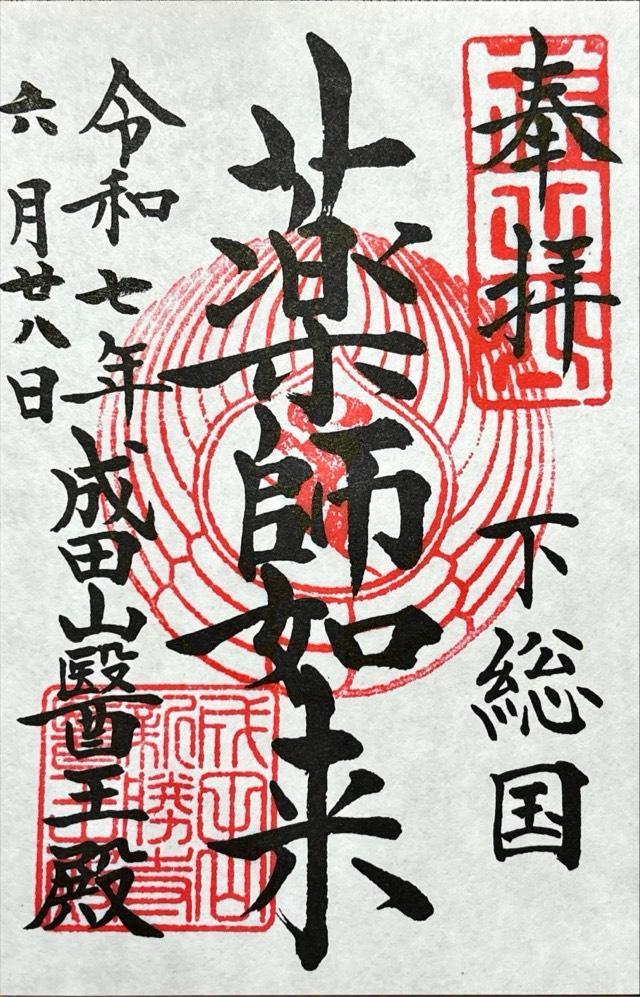 奉拝
下総国
薬師如来
令和七年
六月廿八日
成田山醫王殿
成田山
新勝寺
醫王殿